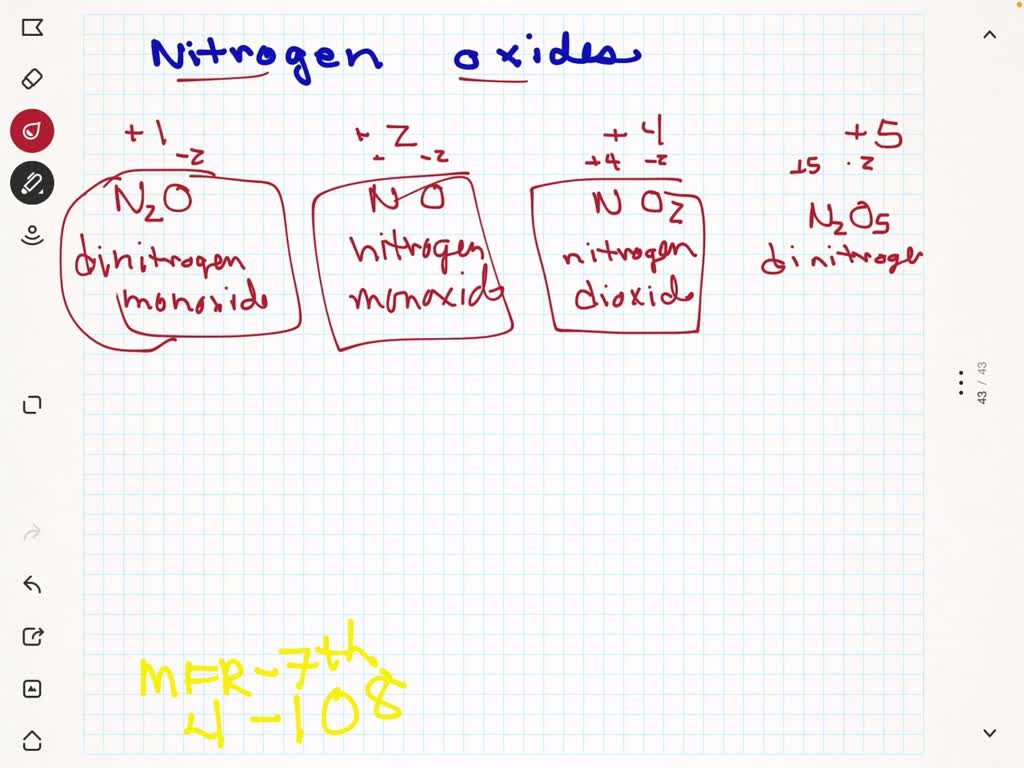 Nitrogen oxides
+1 + 2 +4 +5
-2 - -2 +4 -2 +5 -2
N2O NO NO2 N2O5
dinitrogen monoxide
nitrogen monoxide
nitrogen dioxide
dinitroge
43 / 43
MFR-7th
4-108